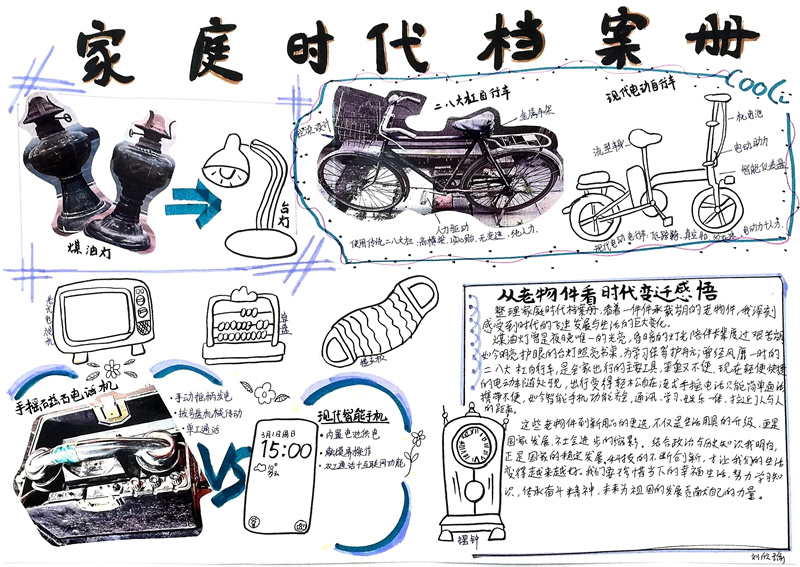 家庭时代档案册
cool
煤油灯
台灯
二八大杠自行车
金属车架
现代电动自行车
电动助力
智能仪表盘
人力驱动
算盘
摆钟
手摇磁石电话机
手动摇柄发电
拨号盘机械传动
单工通话
VS
现代智能手机
3月1日周日
15:00
内置电池供电
触摸屏操作
双工通话+互联网功能
从老物件看时代变迁感悟
整理家庭时代档案册,看着一件件承载岁月的老物件,我深刻
感受到时代的飞速发展与生活的巨大变化。
煤油灯曾是夜晚唯一的光亮,昏暗的灯光陪伴长辈度过艰苦岁
如今明亮护眼的台灯照亮书桌,为学习保驾护航;曾经风靡一时的
二八大杠自行车,是全家出行的主要工具,笨重又不便,现在轻便快捷
的电动车随处可见,出行变得轻松自在;老式手摇电话只能简单通话
携带不便,如今智能手机功能齐全,通讯、学习、娱乐一体,拉近了人与人
的距离。
这些老物件到新用品的变迁,不仅是生活用具的升级,更是
国家发展、社会进步的缩影。结合政治与历史知识我明白,
正是国家的稳定发展、科技的不断创新,才让我们的生活
变得越来越好。我们要珍惜当下的幸福生活,努力学习知
识,传承奋斗精神,未来为祖国的发展贡献自己的力量。